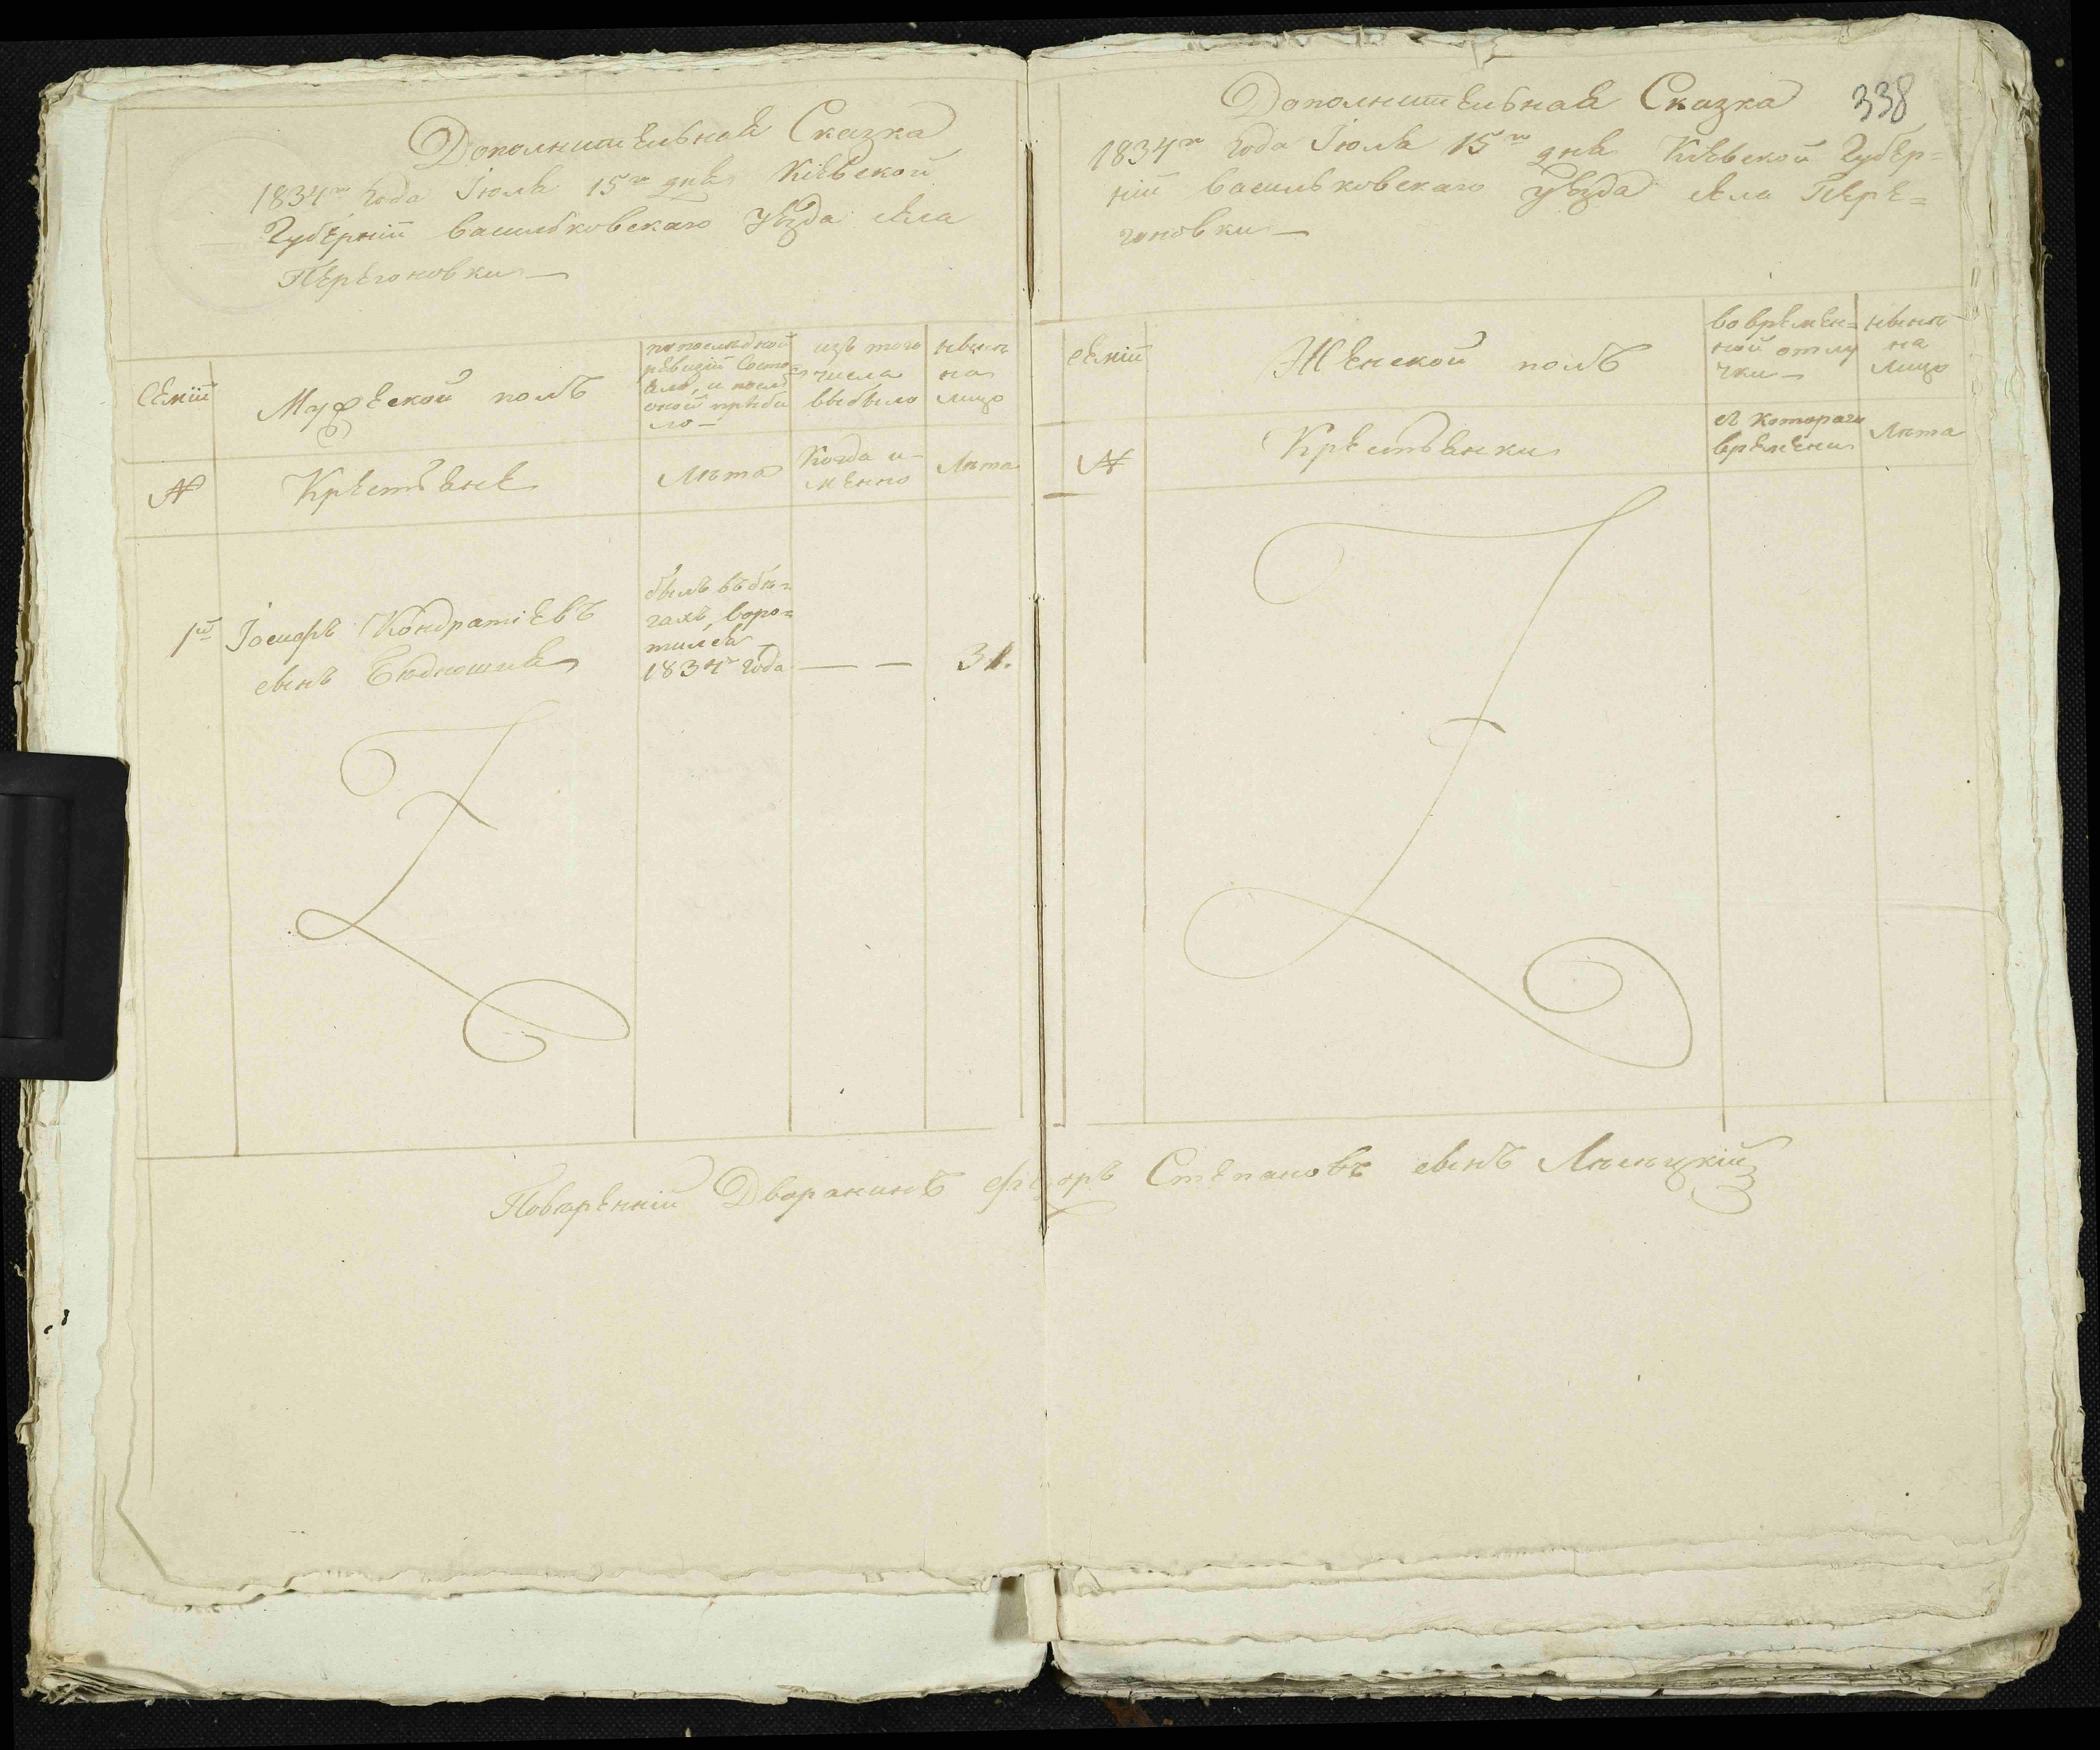 Дополнительная Сказка
1834го года Іюля 15го дня Кіевской
Губерніи Васильковскаго уѣзда села
Перегоновки —
Семіи
Мужеской полъ
по последной
ревизіи состо
ялъ, и посл
оной прибы
ло —
изъ того
числа
выбыло
нынѣ
на
лицо
№
Крестьяне
Лѣта
Когда и-
менно
Лѣта
1й Іосифъ Кондратіевъ
сынъ
былъ въ бѣ=
гахъ, воро=
тился
1834го года — — 31.
338
Дополнительная Сказка
1834го года Іюля 15го дня Кіевской Губер=
ніи Васильковскаго уѣзда села Пере=
гоновки —
семіи
Женской полъ
во времен=
ной отлу
чки —
нынѣ
на
лицо
№
Крестьянки
съ котораго
времени
Лѣта
Поверенній Дворанинъ Фіодоръ Степановъ сынъ